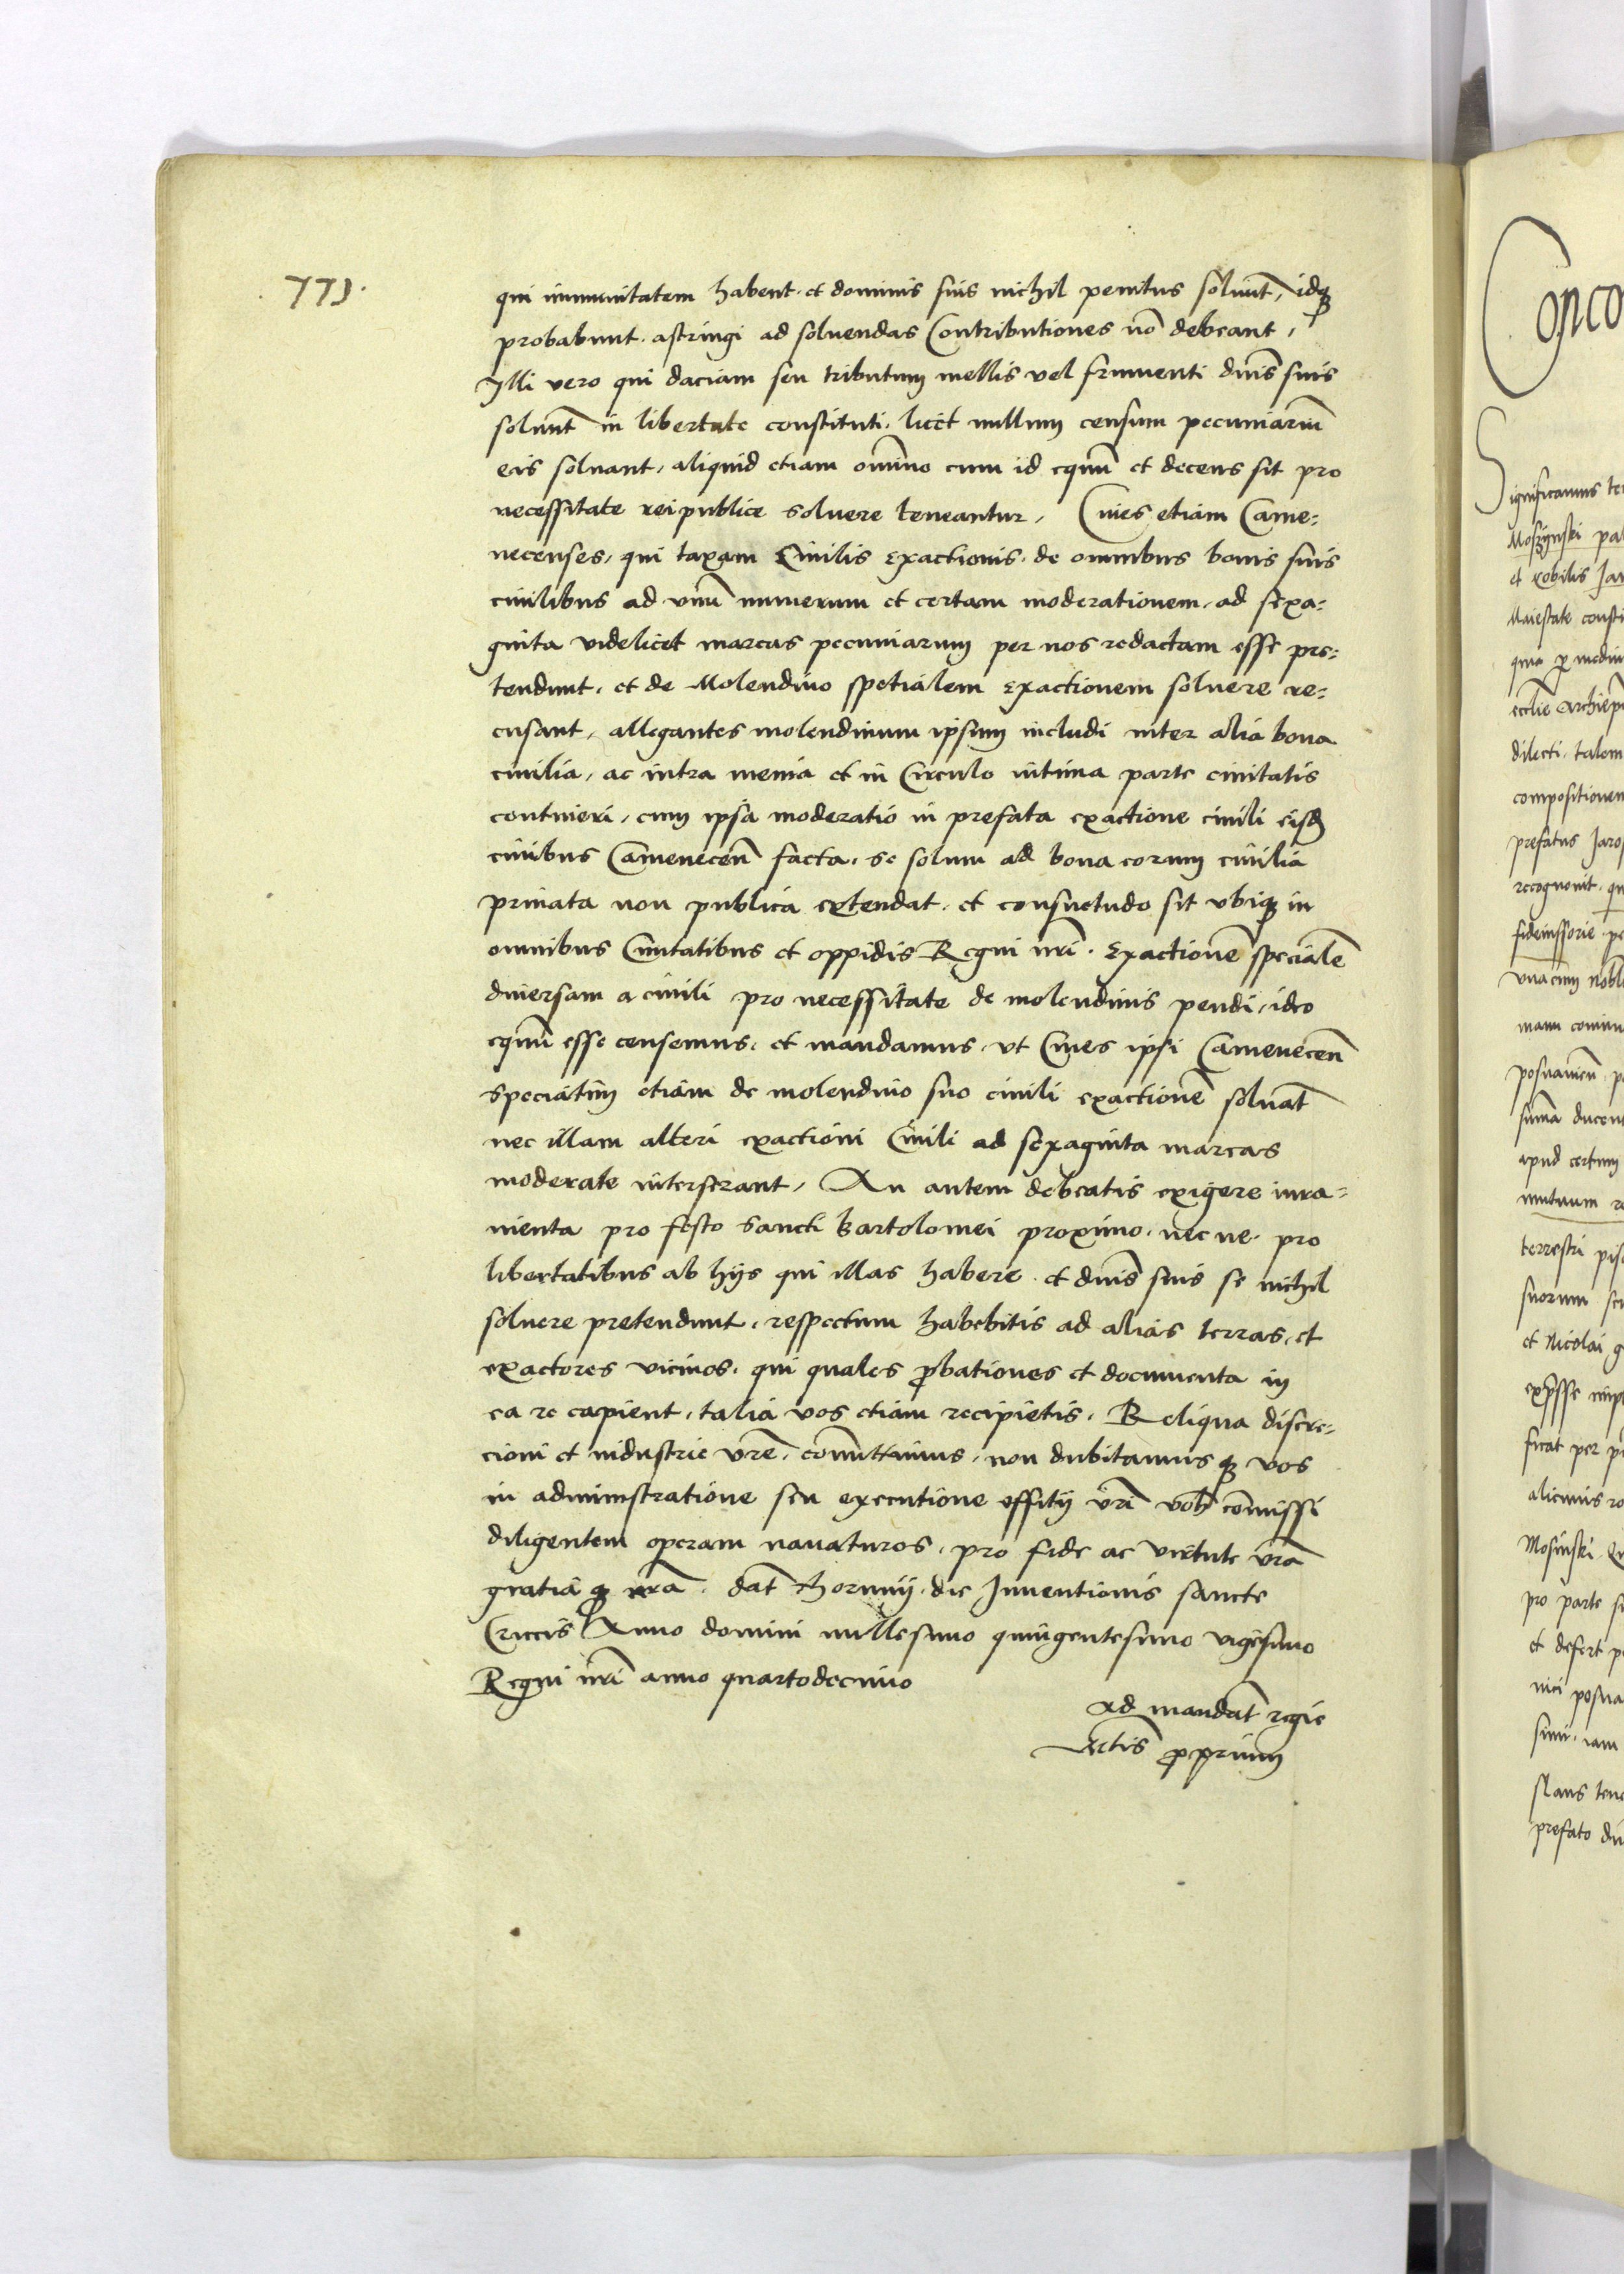 773.
qui immunitatem habent et dominis suis nichil penitus solvunt, idq
probabunt. astringi ad solvendas Contributiones nõ debeant,
Illi vero qui daciam seu tributum mellis vel frumenti dnis suis
solvunt in libertate constituti, licet nullum censum pecuniariũ
eis solvant, aliquid etiam omnino cum id equũ et decens sit pro
necessitate reipublice soluere teneantur, Cives etiam Came=
necenses, qui taxam Civilis exactionis, de omnibus bonis suis
civilibus ad vnũ numerum et certam moderationem, ad sexa=
ginta videlicet marcas pecuniarum per nos redactam esse pre=
tendunt, et de Molendino spetialem exactionem soluere re=
cusant, allegantes molendinum ipsum includi inter alia bona
civilia, ac intra menia et in Circulo intima parte civitatis
contineri, cum ipsa moderatio in prefata exactione civili eisd
civibus Camenecen̄ facta, se solum ad bona eorum civilia
privata non publica extendat, et consuetudo sit vbiq in
omnibus Civitatibus et oppidis Regni nr̃i. Exactionẽ specialẽ
diversam a civili pro necessitate de molendinis pendi, ideo
equũ esse censemus, et mandamus, vt Cives ipsi Camenecen̄
speciatim etiam de molendino suo civili exactionẽ soluãt
nec illam alteri exactioni Civili ad sexaginta marcas
moderate interserant, An autem debeatis exigere iura=
menta pro festo Sancti Bartolomei proximo, nec ne pro
libertatibus ab hijs qui illas habere et dnis suis se nichil
soluere pretendunt, respectum habebitis ad alias terras, et
exactores vicinos, qui quales probationes et documenta in
ea re capient, talia vos etiam recipietis, Reliqua discre=
cioni et industrie vr̃e, comittimus, non dubitamus q vos
in administratione seu executione offitij vr̃i vob comissi
diligentem operam navaturos, pro fide ac virtute vr̃a
gratiaq nr̃a. dat̃ Thorunij die Inventionis sancte
Crucis Anno domini millesimo quingentesimo vigesimo
Regni nr̃i anno quartodecimo
Ad mandat̃ regie
Mtis proprium
Conco
Significamus te
Moszynski pal
et nobilis Jar
Maiestate consti
quia p mediu
ecclie Archiep
dilecti, talem
compositionem
prefatus Jaros
recognovit, qu
fideiussorie pe
vnacum nobi
manu coniun
posnanien̄ p
suma ducent
apud certum
mutuum re
terrestri pis
suorum se
et Nicolai g
expresse imp
ficat per p
alicuius ro
Mosinski
pro parte s
et desert p
nici posna
simi, iam
slaus ten
prefato dn